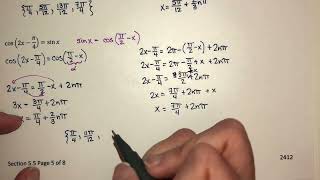 {π/4, 5π/12, 13π/12, 7π/4}
x = 5π/12 + 2/3nπ
cos(2x-π/4) = sinx
sinx = cos(π/2 - x)
cos(2x-π/4) = cos(π/2 - x)
2x-π/4 = π/2 - x + 2nπ
3x = 3π/4 + 2nπ
x = π/4 + 2/3nπ
2x-π/4 = 2π-(π/2-x) + 2nπ
2x-π/4 = 3π/2 + x + 2nπ
2x = 7π/4 + 2nπ
x = 7π/4 + 2nπ
{π/4, 11π/12,
Section 5.5 Page 5 of 8
2412